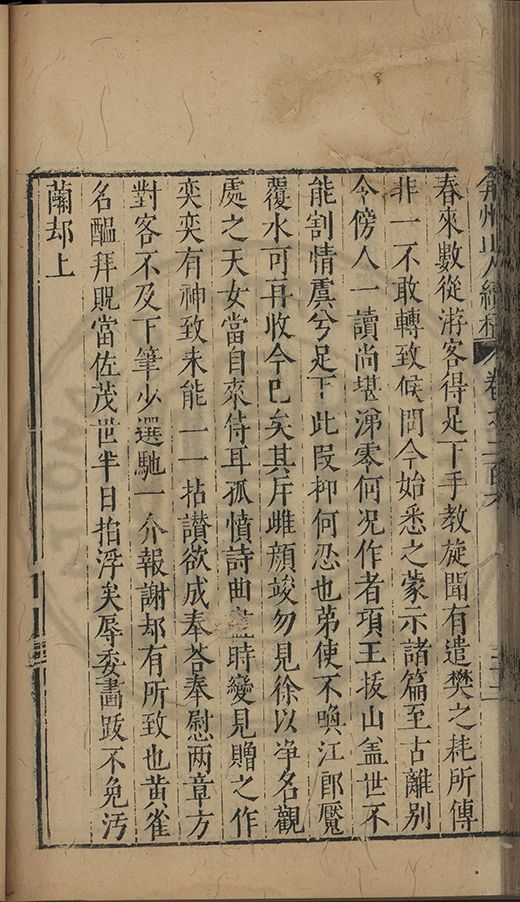 弇州山人續稿 卷之二百六
春來數從游客得足下手教旋聞有遣樊之耗所傳
非一不敢轉致候問今始悉之蒙示諸篇至古離別
今傍人一讀尚堪涕零何况作者項王拔山盖世不
能割情虞兮足下此叚抑何忍也弟使不喚江郎魘
覆水可再收今已矣其斥雌顔竣勿見徐以净名觀
處之天女當自來侍耳孤憤詩曲盡時變見贈之作
奕奕有神致未能一一拈讃欲成奉荅奉慰两章方
對客不及下筆少選馳一介報謝却有所致也黄雀
名醖拜貺當佐茂世半日拍浮矣辱委畵跋不免汚
蘭却上